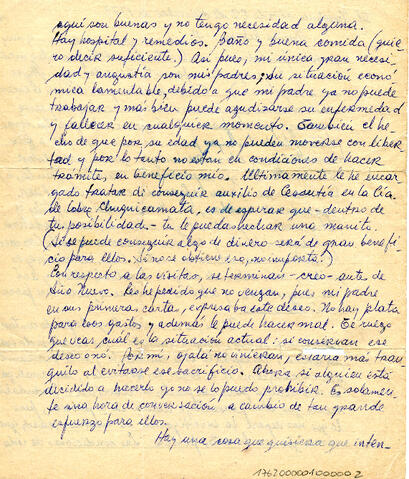 aquí son buenas y no tengo necesidad alguna.
Hay hospital y remedios. Baño y buena comida (quie-
ro decir suficiente.) Así pues, mi única gran necesi-
dad y angustia son mis padres; su situación econó-
mica lamentable, debido a que mi padre ya no puede
trabajar y más bien puede agudizarse su enfermedad
y fallecer en cualquier momento. También el he-
cho de que por su edad ya no pueden moverse con liber-
tad y por lo tanto no están en condiciones de hacer
trámite, en beneficio mío. Ultimamente le he encar-
gado tratar de conseguir auxilio de Cesantía en la Cía.
de Cobre Chuquicamata, es de esperar que - dentro de
tus posibilidad - tu le puedas hechar una manito.
(Si se puede conseguir algo de dinero será de gran benefi-
cio para ellos. Si no se obtiene eso, no importa!)
Con respecto a las visitas, se terminan - creo - antes de
Año Nuevo. Les he pedido que no vengan, pues mi padre
en sus primeras cartas, expresaba este deseo. No hay plata
para esos gastos y además le puede hacer mal. Te ruego
que veas, cuál es la situación actual: si conservan ese
deseo o no. Por mi, ojalá no vinieran, estaría más tran-
quilo al evitarse ese sacrificio. Ahora si alguien está
decidido a hacerlo yo no se lo puedo prohibir. Es solamen-
te una hora de conversación, a cambio de tan grande
esfuerzo para ellos.
Hay una cosa que quisiera que inten-
176200000100000 2